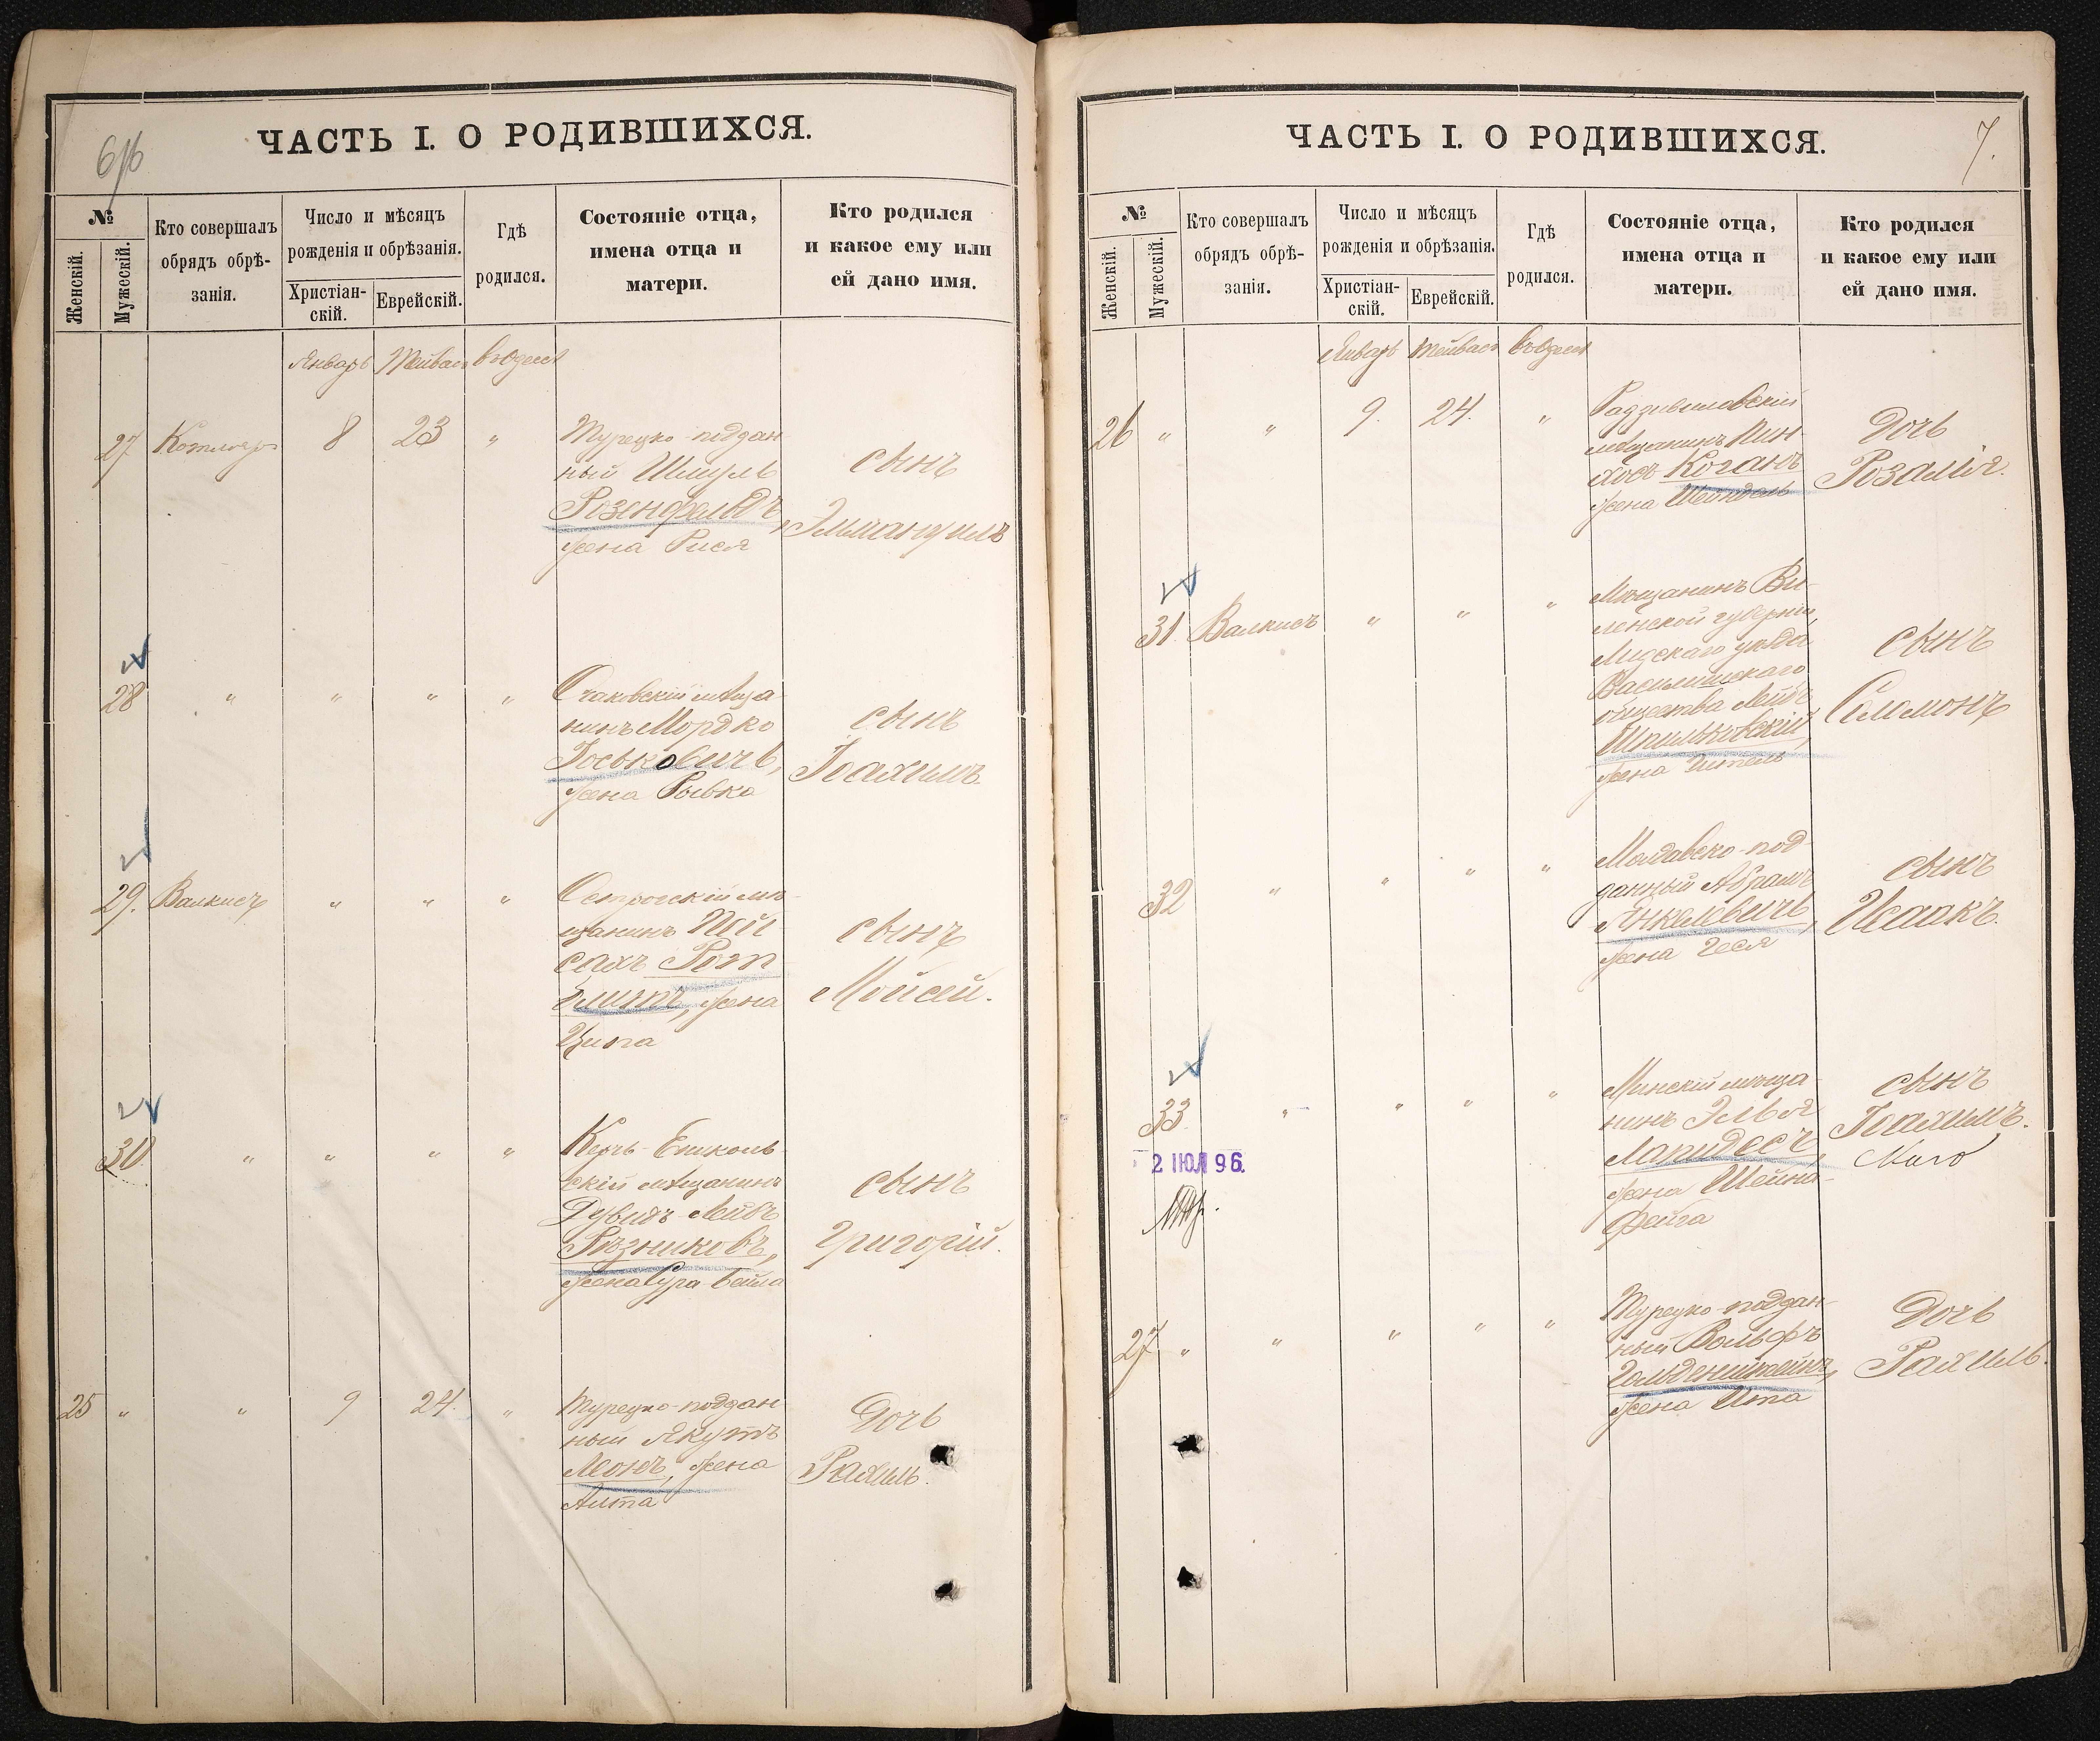 6/6
ЧАСТЬ I. О РОДИВШИХСЯ.
№
Женскій.
Мужескій.
Кто совершалъ
обрядъ обрѣ-
занія.
Число и мѣсяцъ
рожденія и обрѣзанія.
Христіан-
скій.
Еврейскій.
Гдѣ
родился.
Состояніе отца,
имена отца и
матери.
Кто родился
и какое ему или
ей дано имя.
Январь Тейвасъ въ Одессѣ
27 Котляръ 8 23 "
Турецко-поддан-
ный Шмуль
Розенфельдъ,
жена Рися
сынъ
Эммануилъ
28 " " " "
Очаковскій мѣща-
нинъ Мордко
Іоськовичъ,
жена Рывка
сынъ
Іоахимъ.
29. Валкисъ " " "
Острогскій мѣ-
щанинъ Пей-
сахъ Рот-
блитъ, жена
Ципа
сынъ
Мойсей.
30 " " " "
Керчь-Ениколь-
скій мѣщанинъ
Дувидъ-Лейбъ
Рѣзниковъ,
жена Сура-Бейла
сынъ
Григорій.
25 " " 9 24. "
Турецко-поддан-
ный Якутъ
Леонъ, жена
Алта
Дочь
Рахиль.
7.
ЧАСТЬ I. О РОДИВШИХСЯ.
№
Женскій.
Мужескій.
Кто совершалъ
обрядъ обрѣ-
занія.
Число и мѣсяцъ
рожденія и обрѣзанія.
Христіан-
скій.
Еврейскій.
Гдѣ
родился.
Состояніе отца,
имена отца и
матери.
Кто родился
и какое ему или
ей дано имя.
Январь Тейвасъ въ Одессѣ
26 " " 9. 24. "
Радзивиловскій
мѣщанинъ Пин-
хосъ Коганъ
жена Шейндель
Дочь
Розалія.
31 Валкисъ " " "
Мѣщанинъ Ви-
ленской губерніи,
Лидскаго уѣзда
Василишскаго
общества Лейбъ
Шпильковскій,
жена Ителъ
сынъ
Соломонъ
32 " " " "
Молдавско-под-
данный Абрамъ
Янкелевичъ,
жена Геся
сынъ
Исаакъ.
33 " " " "
2 ІЮЛ 96.
Минскій мѣща-
нинъ Элья
Лапидесъ,
жена Шейна-
Фейга
сынъ
Іоахимъ.
27 " " " " "
Турецко-поддан-
ный Вольфъ
Гольденштейнъ,
жена Ита
Дочь
Рахиль.